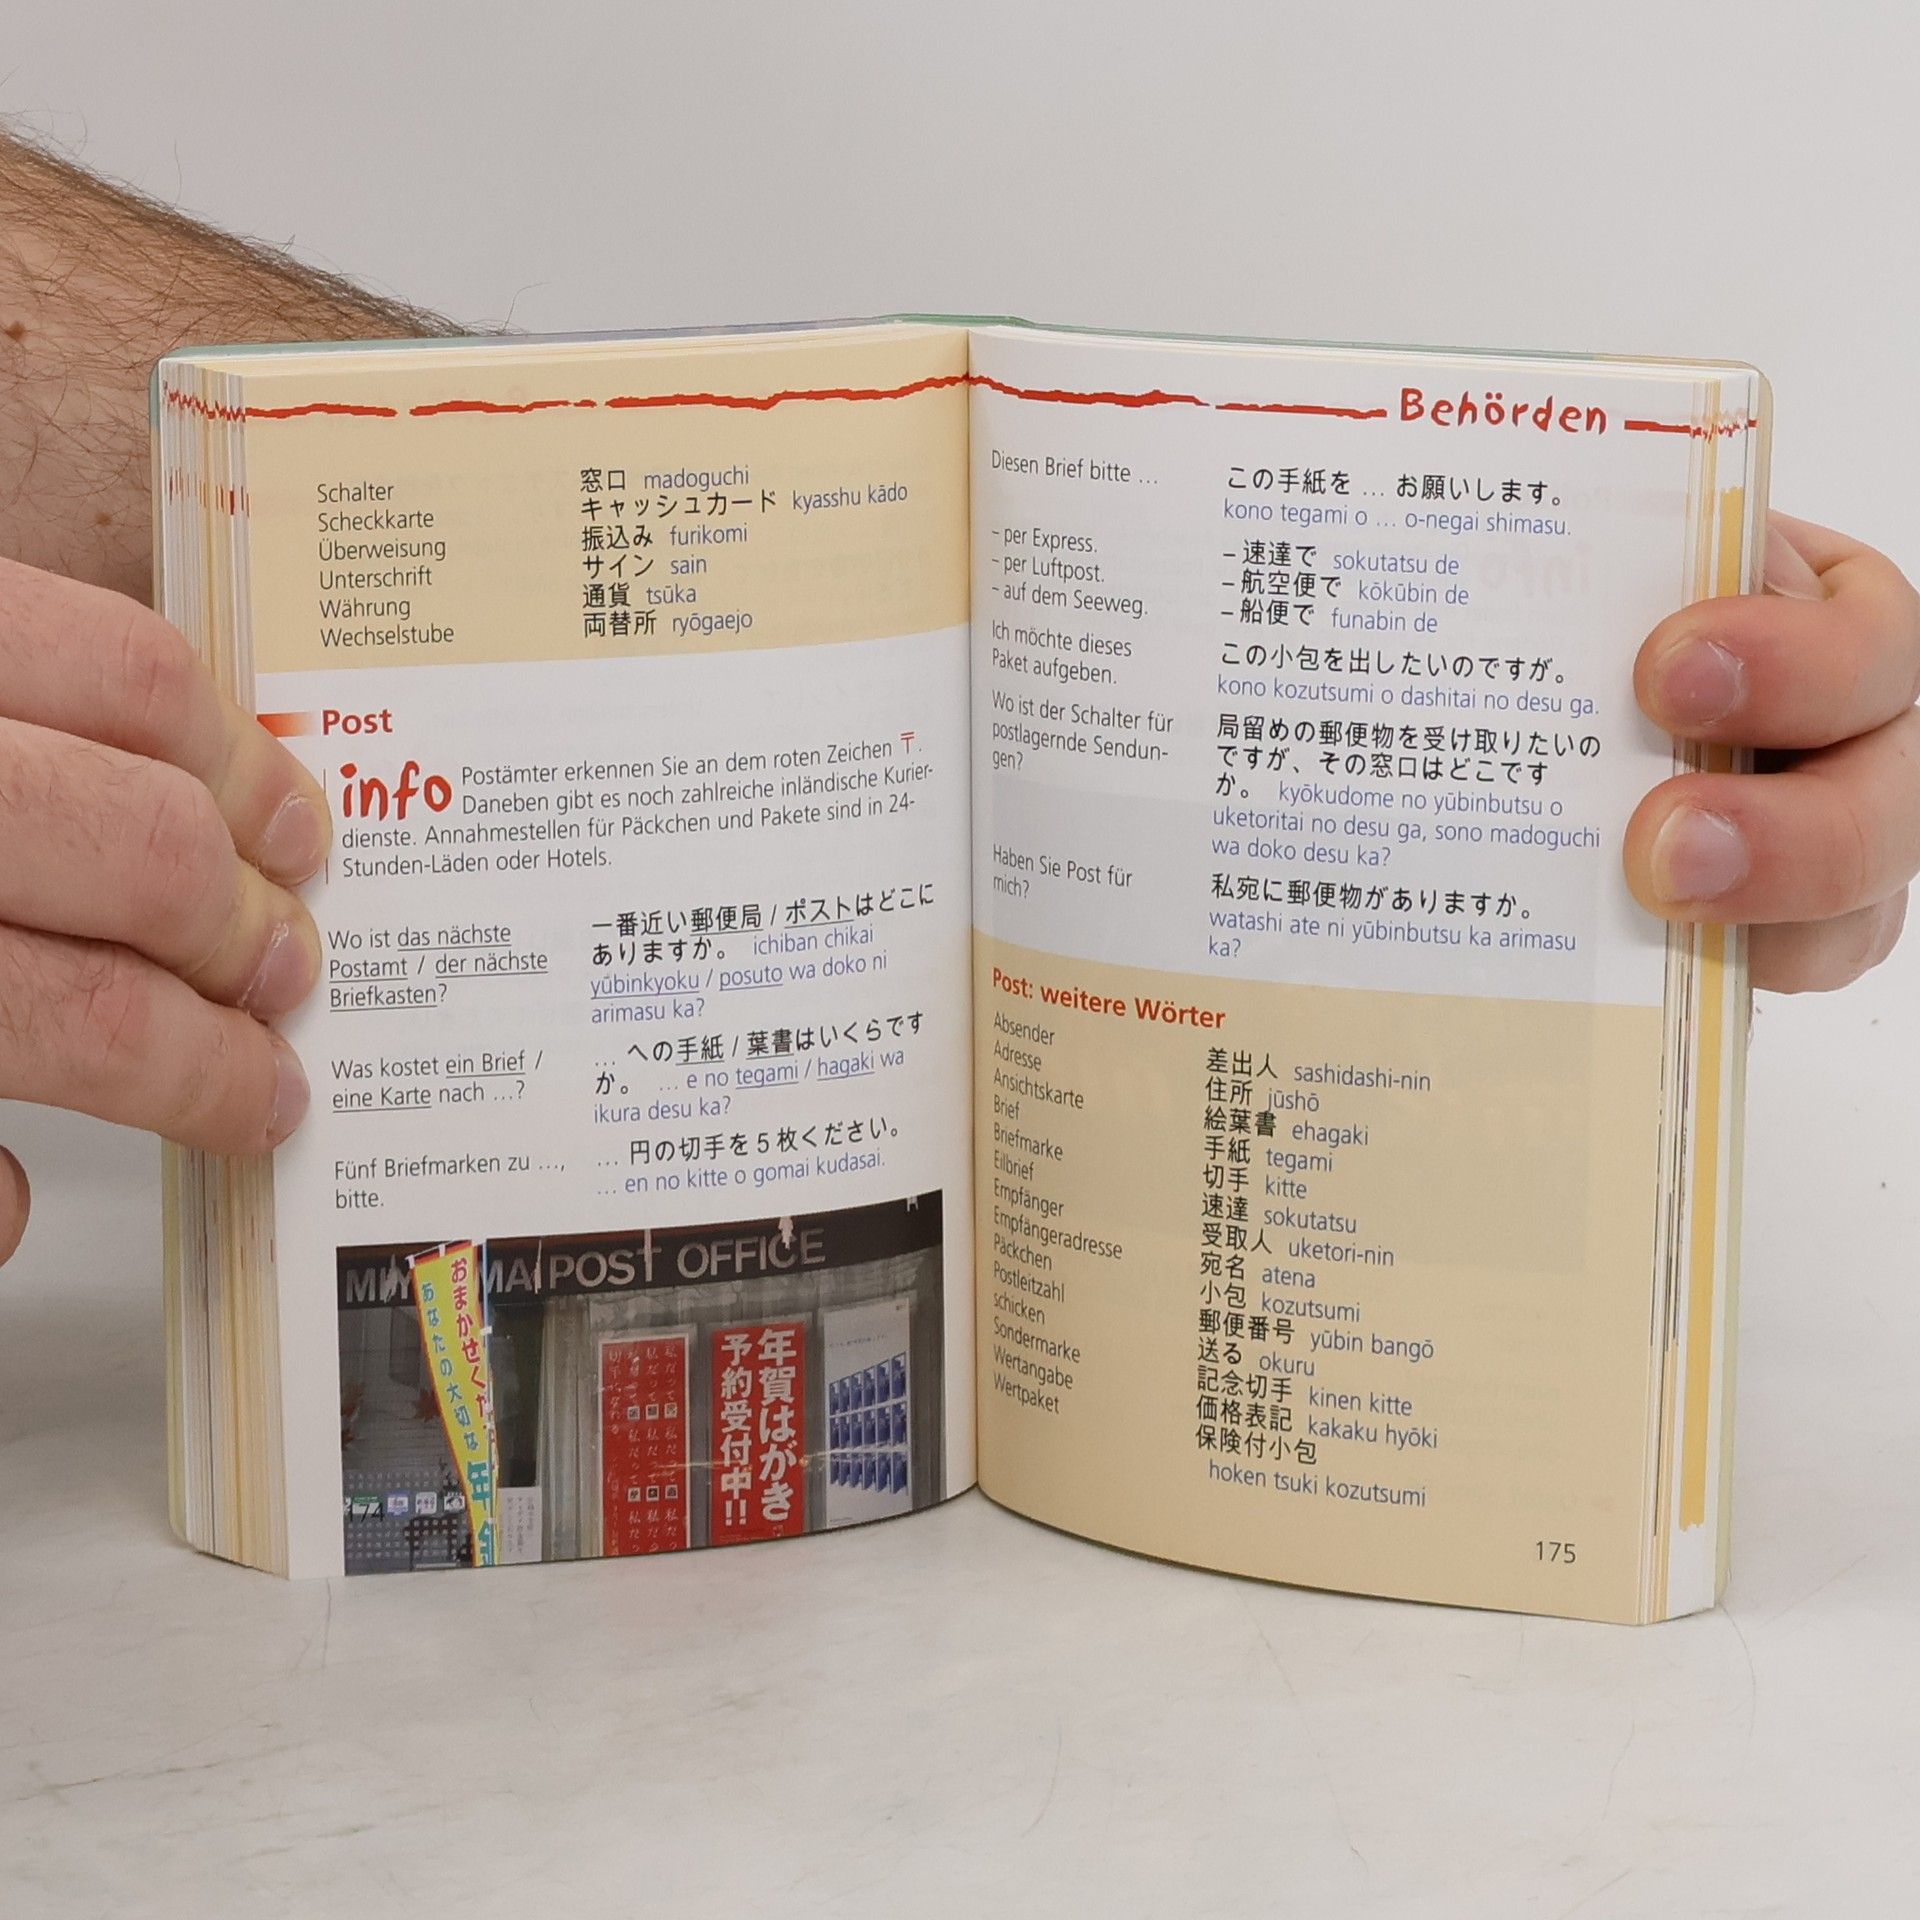 Schalter 窓口 madoguchi
Scheckkarte キャッシュカード kyasshu kādo
Überweisung 振込み furikomi
Unterschrift サイン sain
Währung 通貨 tsūka
Wechselstube 両替所 ryōgaejo
Post
info Postämter erkennen Sie an dem roten Zeichen 〒.
Daneben gibt es noch zahlreiche inländische Kurier-
dienste. Annahmestellen für Päckchen und Pakete sind in 24-
Stunden-Läden oder Hotels.
Wo ist das nächste
Postamt / der nächste
Briefkasten?
一番近い郵便局 / ポストはどこに
ありますか。 ichiban chikai
yūbinkyoku / posuto wa doko ni
arimasu ka?
Was kostet ein Brief /
eine Karte nach …?
… への手紙 / 葉書はいくらです
か。 … e no tegami / hagaki wa
ikura desu ka?
Fünf Briefmarken zu …,
bitte.
… 円の切手を5枚ください。
… en no kitte o gomai kudasai.
POST OFFICE
おまかせくだ
あなたの大切な
年賀はがき
予約受付中!!
174
Behörden
Diesen Brief bitte …
この手紙を … お願いします。
kono tegami o … o-negai shimasu.
– per Express. – 速達で sokutatsu de
– per Luftpost. – 航空便で kōkūbin de
– auf dem Seeweg. – 船便で funabin de
Ich möchte dieses
Paket aufgeben.
この小包を出したいのですが。
kono kozutsumi o dashitai no desu ga.
Wo ist der Schalter für
postlagernde Sendun-
gen?
局留めの郵便物を受け取りたいの
ですが、その窓口はどこです
か。 kyōkudome no yūbinbutsu o
uketoritai no desu ga, sono madoguchi
wa doko desu ka?
Haben Sie Post für
mich?
私宛に郵便物がありますか。
watashi ate ni yūbinbutsu ka arimasu
ka?
Post: weitere Wörter
Absender 差出人 sashidashi-nin
Adresse 住所 jūshō
Ansichtskarte 絵葉書 ehagaki
Brief 手紙 tegami
Briefmarke 切手 kitte
Eilbrief 速達 sokutatsu
Empfänger 受取人 uketori-nin
Empfängeradresse 宛名 atena
Päckchen 小包 kozutsumi
Postleitzahl 郵便番号 yūbin bangō
schicken 送る okuru
Sondermarke 記念切手 kinen kitte
Wertangabe 価格表記 kakaku hyōki
Wertpaket 保険付小包
hoken tsuki kozutsumi
175